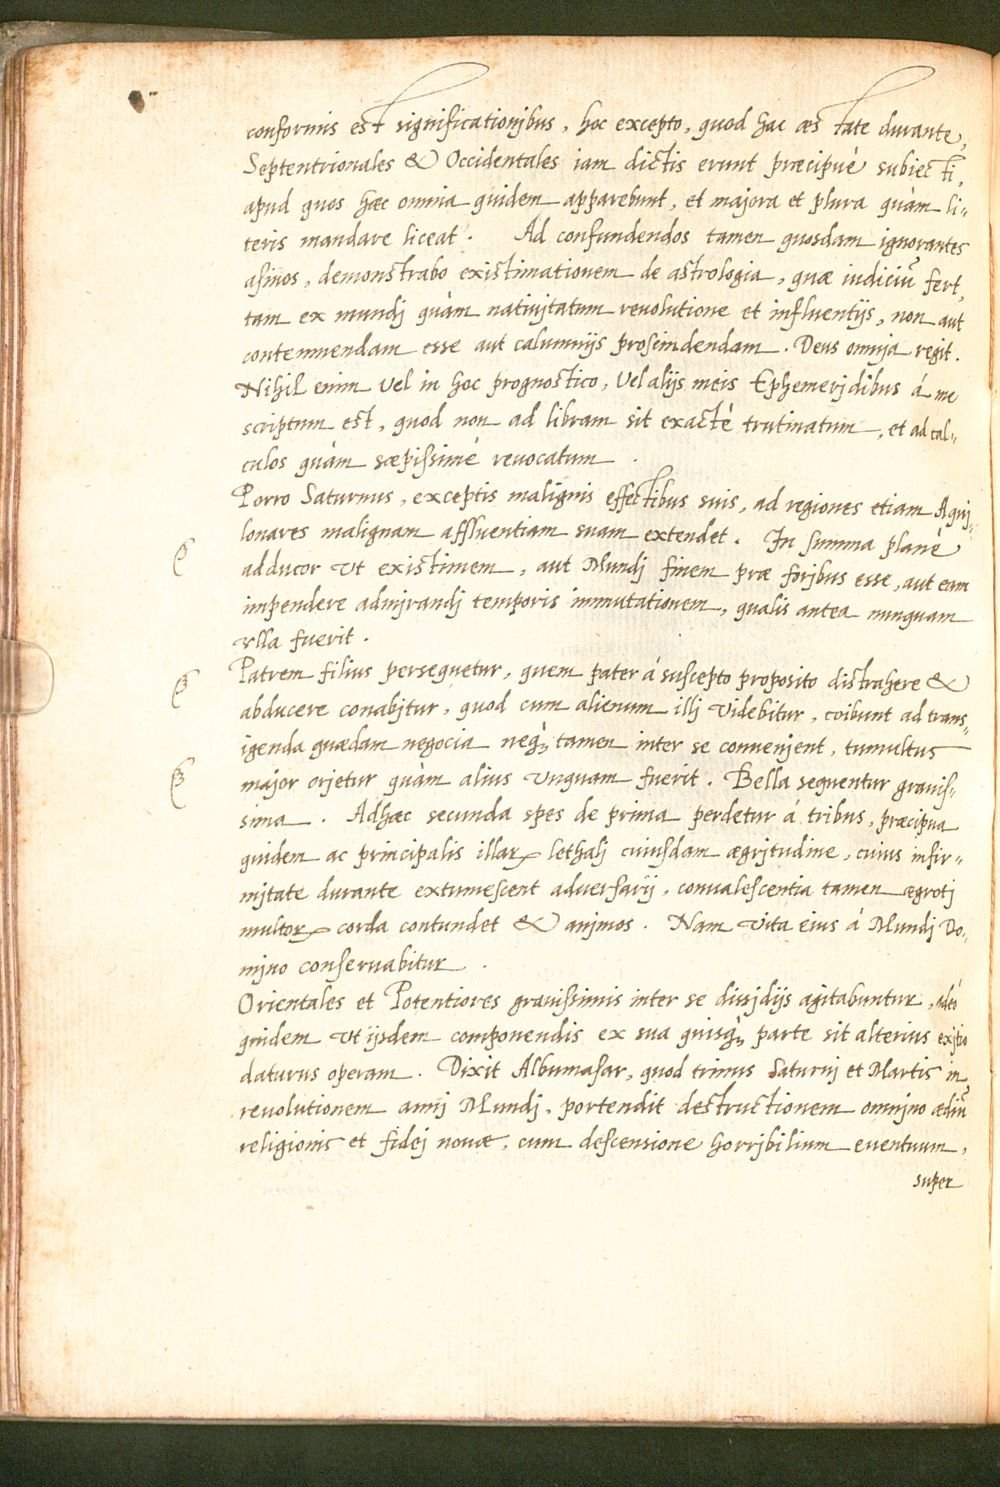 conformis est significationjbus, hoc excepto, quod hac æstate durante,
Septentrionales & Occidentales iam dictis erunt præcipuè subiecti,
apud quos hæc omnia quidem apparebunt, et majora et plura quàm li-
teris mandare liceat. Ad confundendos tamen quosdam ignorantes
asinos, demonstrabo existimationem de astrologia, quæ iudiciũ fert,
tam ex mundj quàm nativjtatum reuolutione et influentijs, non aut
contemnendam esse aut calumnijs proscindendam. Deus omnja regit.
Nihil enim vel in hoc prognostico, vel alijs meis Ephemerjdibus á me
scriptum est, quod non ad libram sit exactè trutinatum, et ad cal-
culos quàm sæpissimè reuocatum.
Porro Saturnus, exceptis malignis effectibus suis, ad regiones etiam Aquj-
lonares malignam affluentiam suam extendet. In summa planè
adducor vt existimem, aut Mundj finem præ forjbus esse, aut eam
impendere admjrandj temporis immutationem, qualis antea nunquam
vlla fuerit.
Patrem filius persequetur, quem pater á suscepto proposito distrahere &
abducere conabjtur, quod cum alienum illj videbitur, coibunt ad trans-
igenda quædam negocia neqꝫ tamen inter se conuenjent, tumultus
major orjetur quàm alius vnquam fuerit. Bella sequentur grauis-
sima. Adhæc secunda spes de prima perdetur á tribus, præcipua
quidem ac principalis illarꝝ lethalj cuiusdam ægrjtudine, cuius infir-
mjtate durante extumescent aduersarij, conualescentia tamen ægrotj
multorꝝ corda contundet & anjmos. Nam vita eius á Mundj Do-
mjno conseruabitur.
Orientales et Potentiores grauissimis inter se dissjdijs agitabuntur, adeò
quidem vt ijsdem componendis ex sua quisqꝫ parte sit alterius exjtio
daturus operam. Dixit Albumasar, quod trinus Saturnj et Martis in
reuolutionem annj Mundj, portendit destructionem omnjno ædiũ
religionis et fidej nouæ, cum descensione horrjbilium euentuum,
super